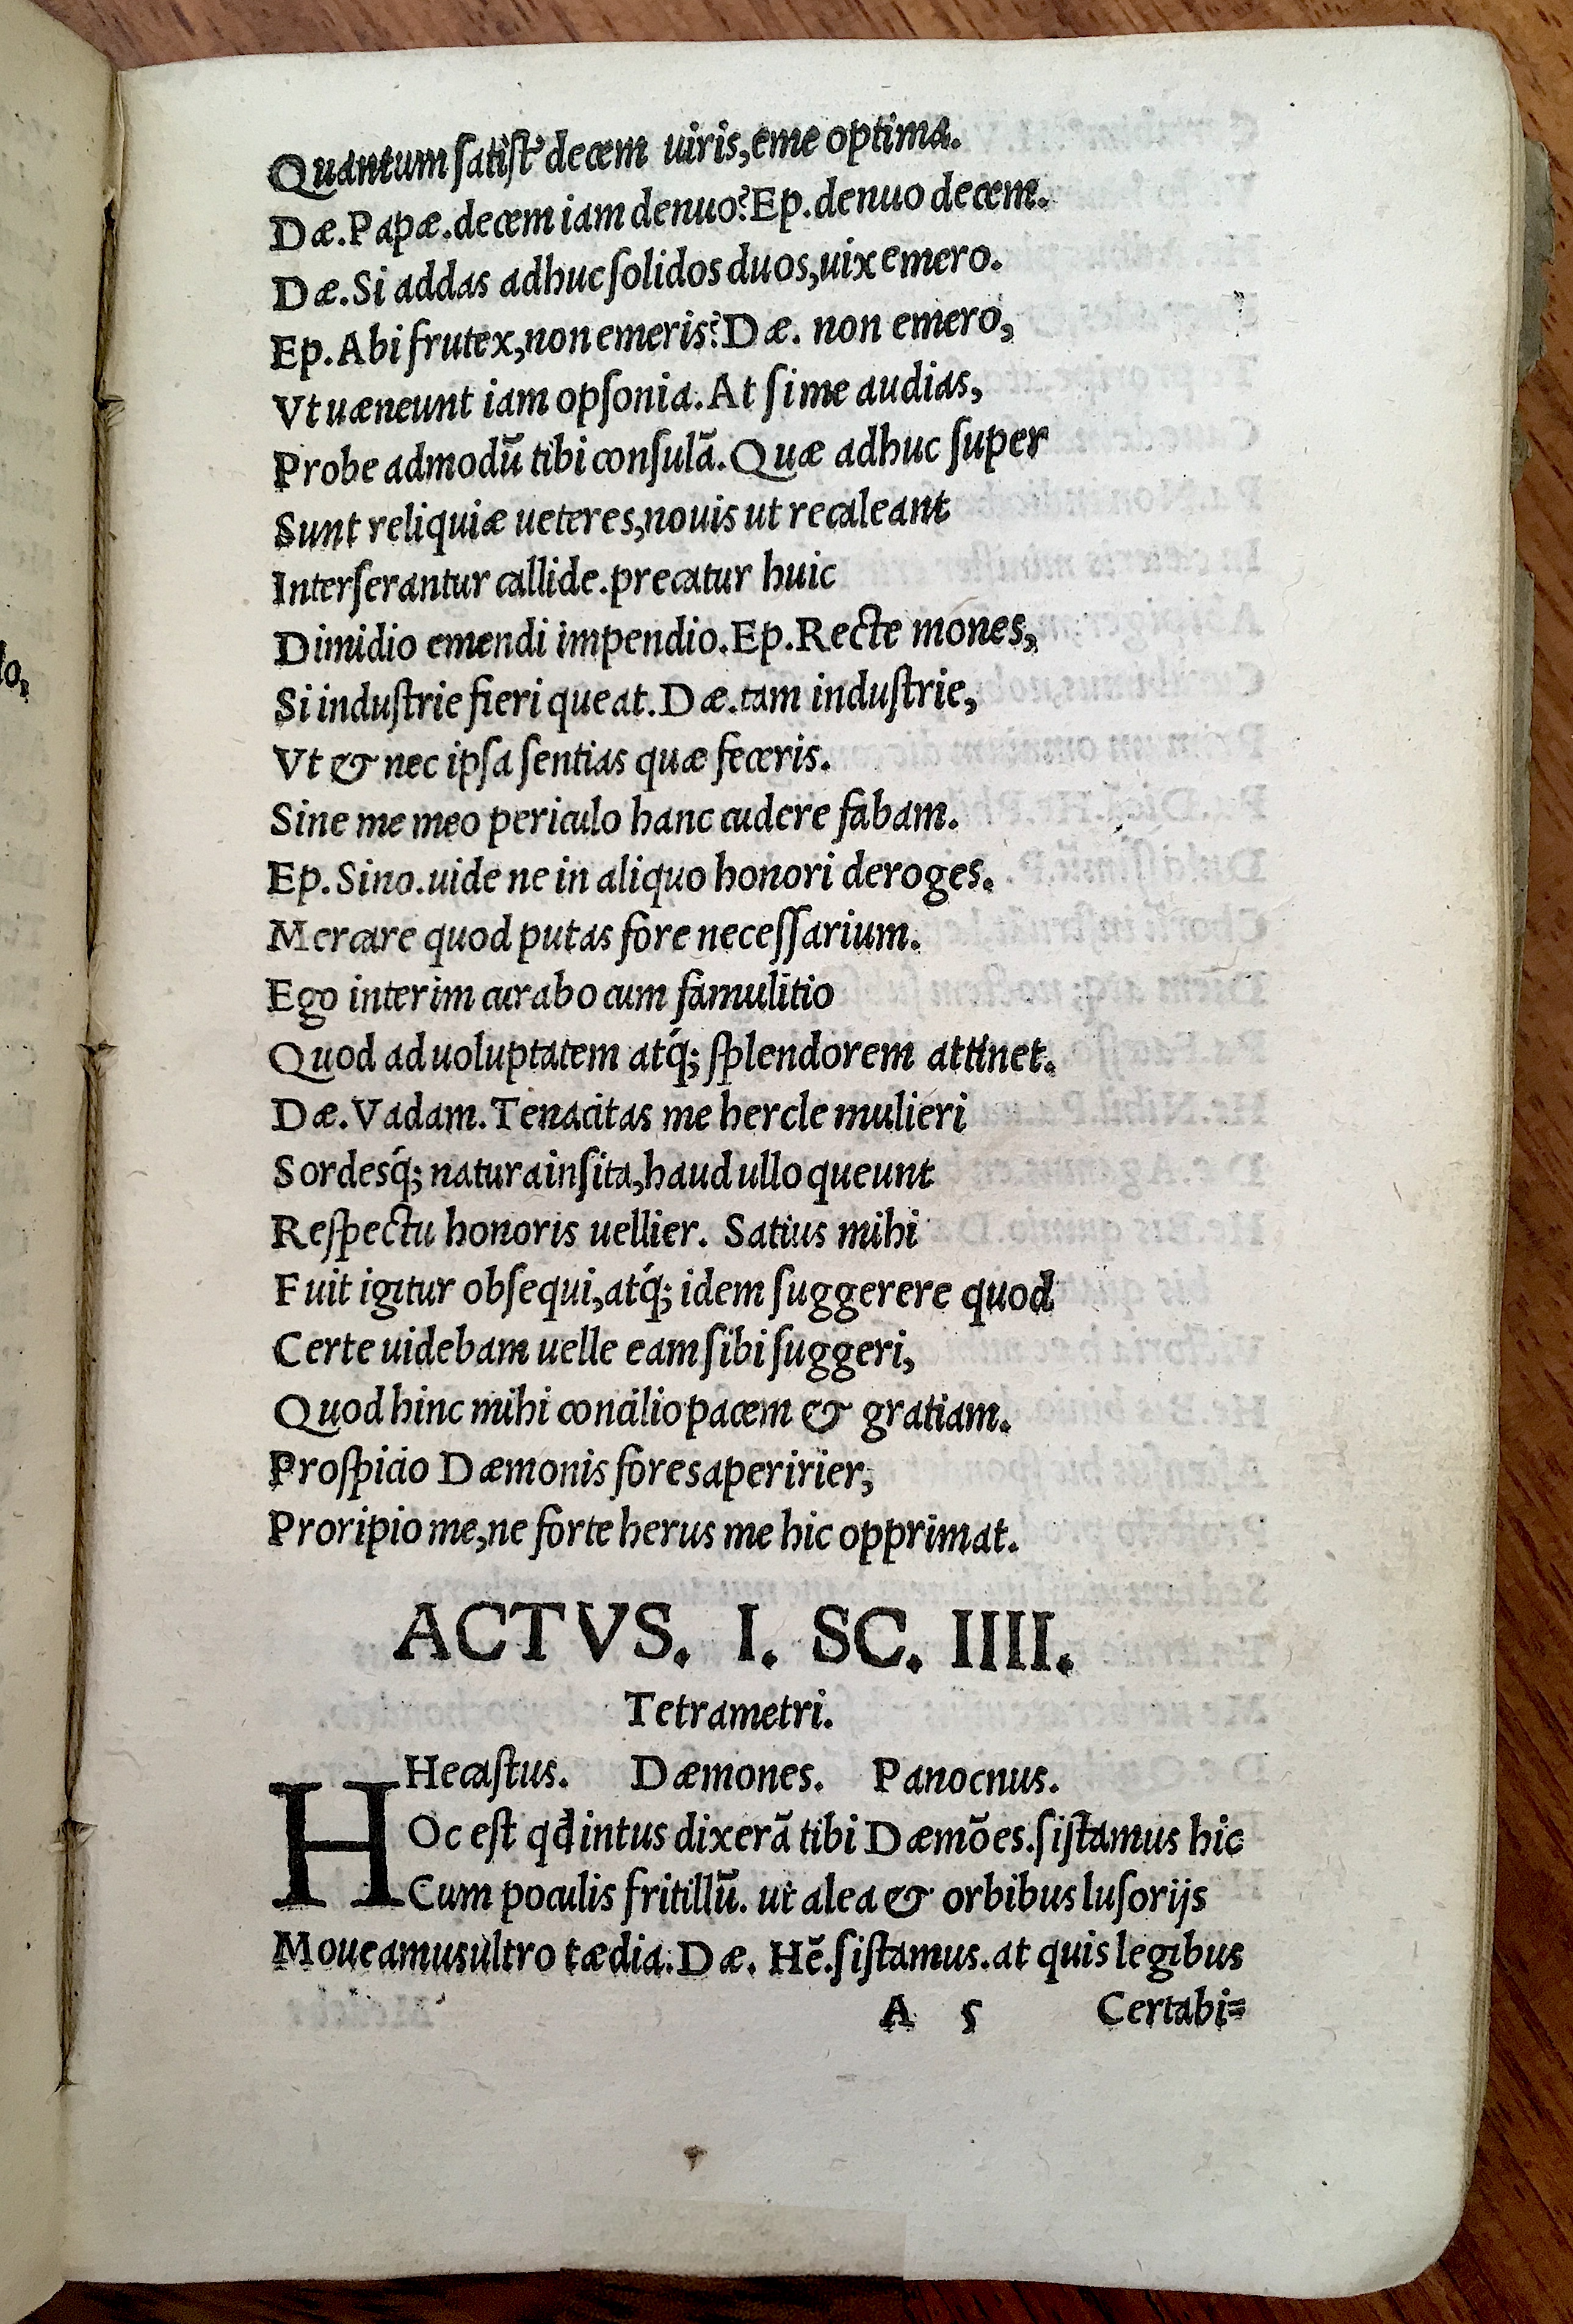 Quantum satisʼt decem uiris,eme optima.
Dæ.Papæ.decem iam denuo? Ep.denuo decem.
Dæ.Si addas adhuc solidos duos,uix emero.
Ep.Abi frutex,non emeris? Dæ. non emero,
Vt uæneunt iam opsonia.At si me audias,
Probe admodū tibi consulā.Quæ adhuc super
Sunt reliquiæ ueteres,nouis ut recaleant
Interserantur callide.precatur huic
Dimidio emendi impendio.Ep.Recte mones,
Si industrie fieri queat.Dæ.tam industrie,
Vt & nec ipsa sentias quæ feceris.
Sine me meo periculo hanc cudere fabam.
Ep.Sino.uide ne in aliquo honori deroges.
Mercare quod putas fore necessarium.
Ego interim curabo cum famulitio
Quod ad uoluptatem atq́; splendorem attinet.
Dæ.Vadam.Tenacitas me hercle mulieri
Sordesq́; natura insita,haud ullo queunt
Respectu honoris uellier. Satius mihi
Fuit igitur obsequi,atq́; idem suggerere quod
Certe uidebam uelle eam sibi suggeri,
Quod hinc mihi concilio pacem & gratiam.
Prospicio Dæmonis fores aperirier,
Proripio me,ne forte herus me hic opprimat.
ACTVS. I. SC. IIII.
Tetrametri.
Hecastus. Dæmones. Panocnus.
HOc est qđ intus dixerā tibi Dæmões.sistamus hic
Cum poculis fritillū. ut alea & orbibus lusorijs
Moueamus ultro tædia.Dæ. Hē.sistamus.at quis legibus
A 5 Certabi=